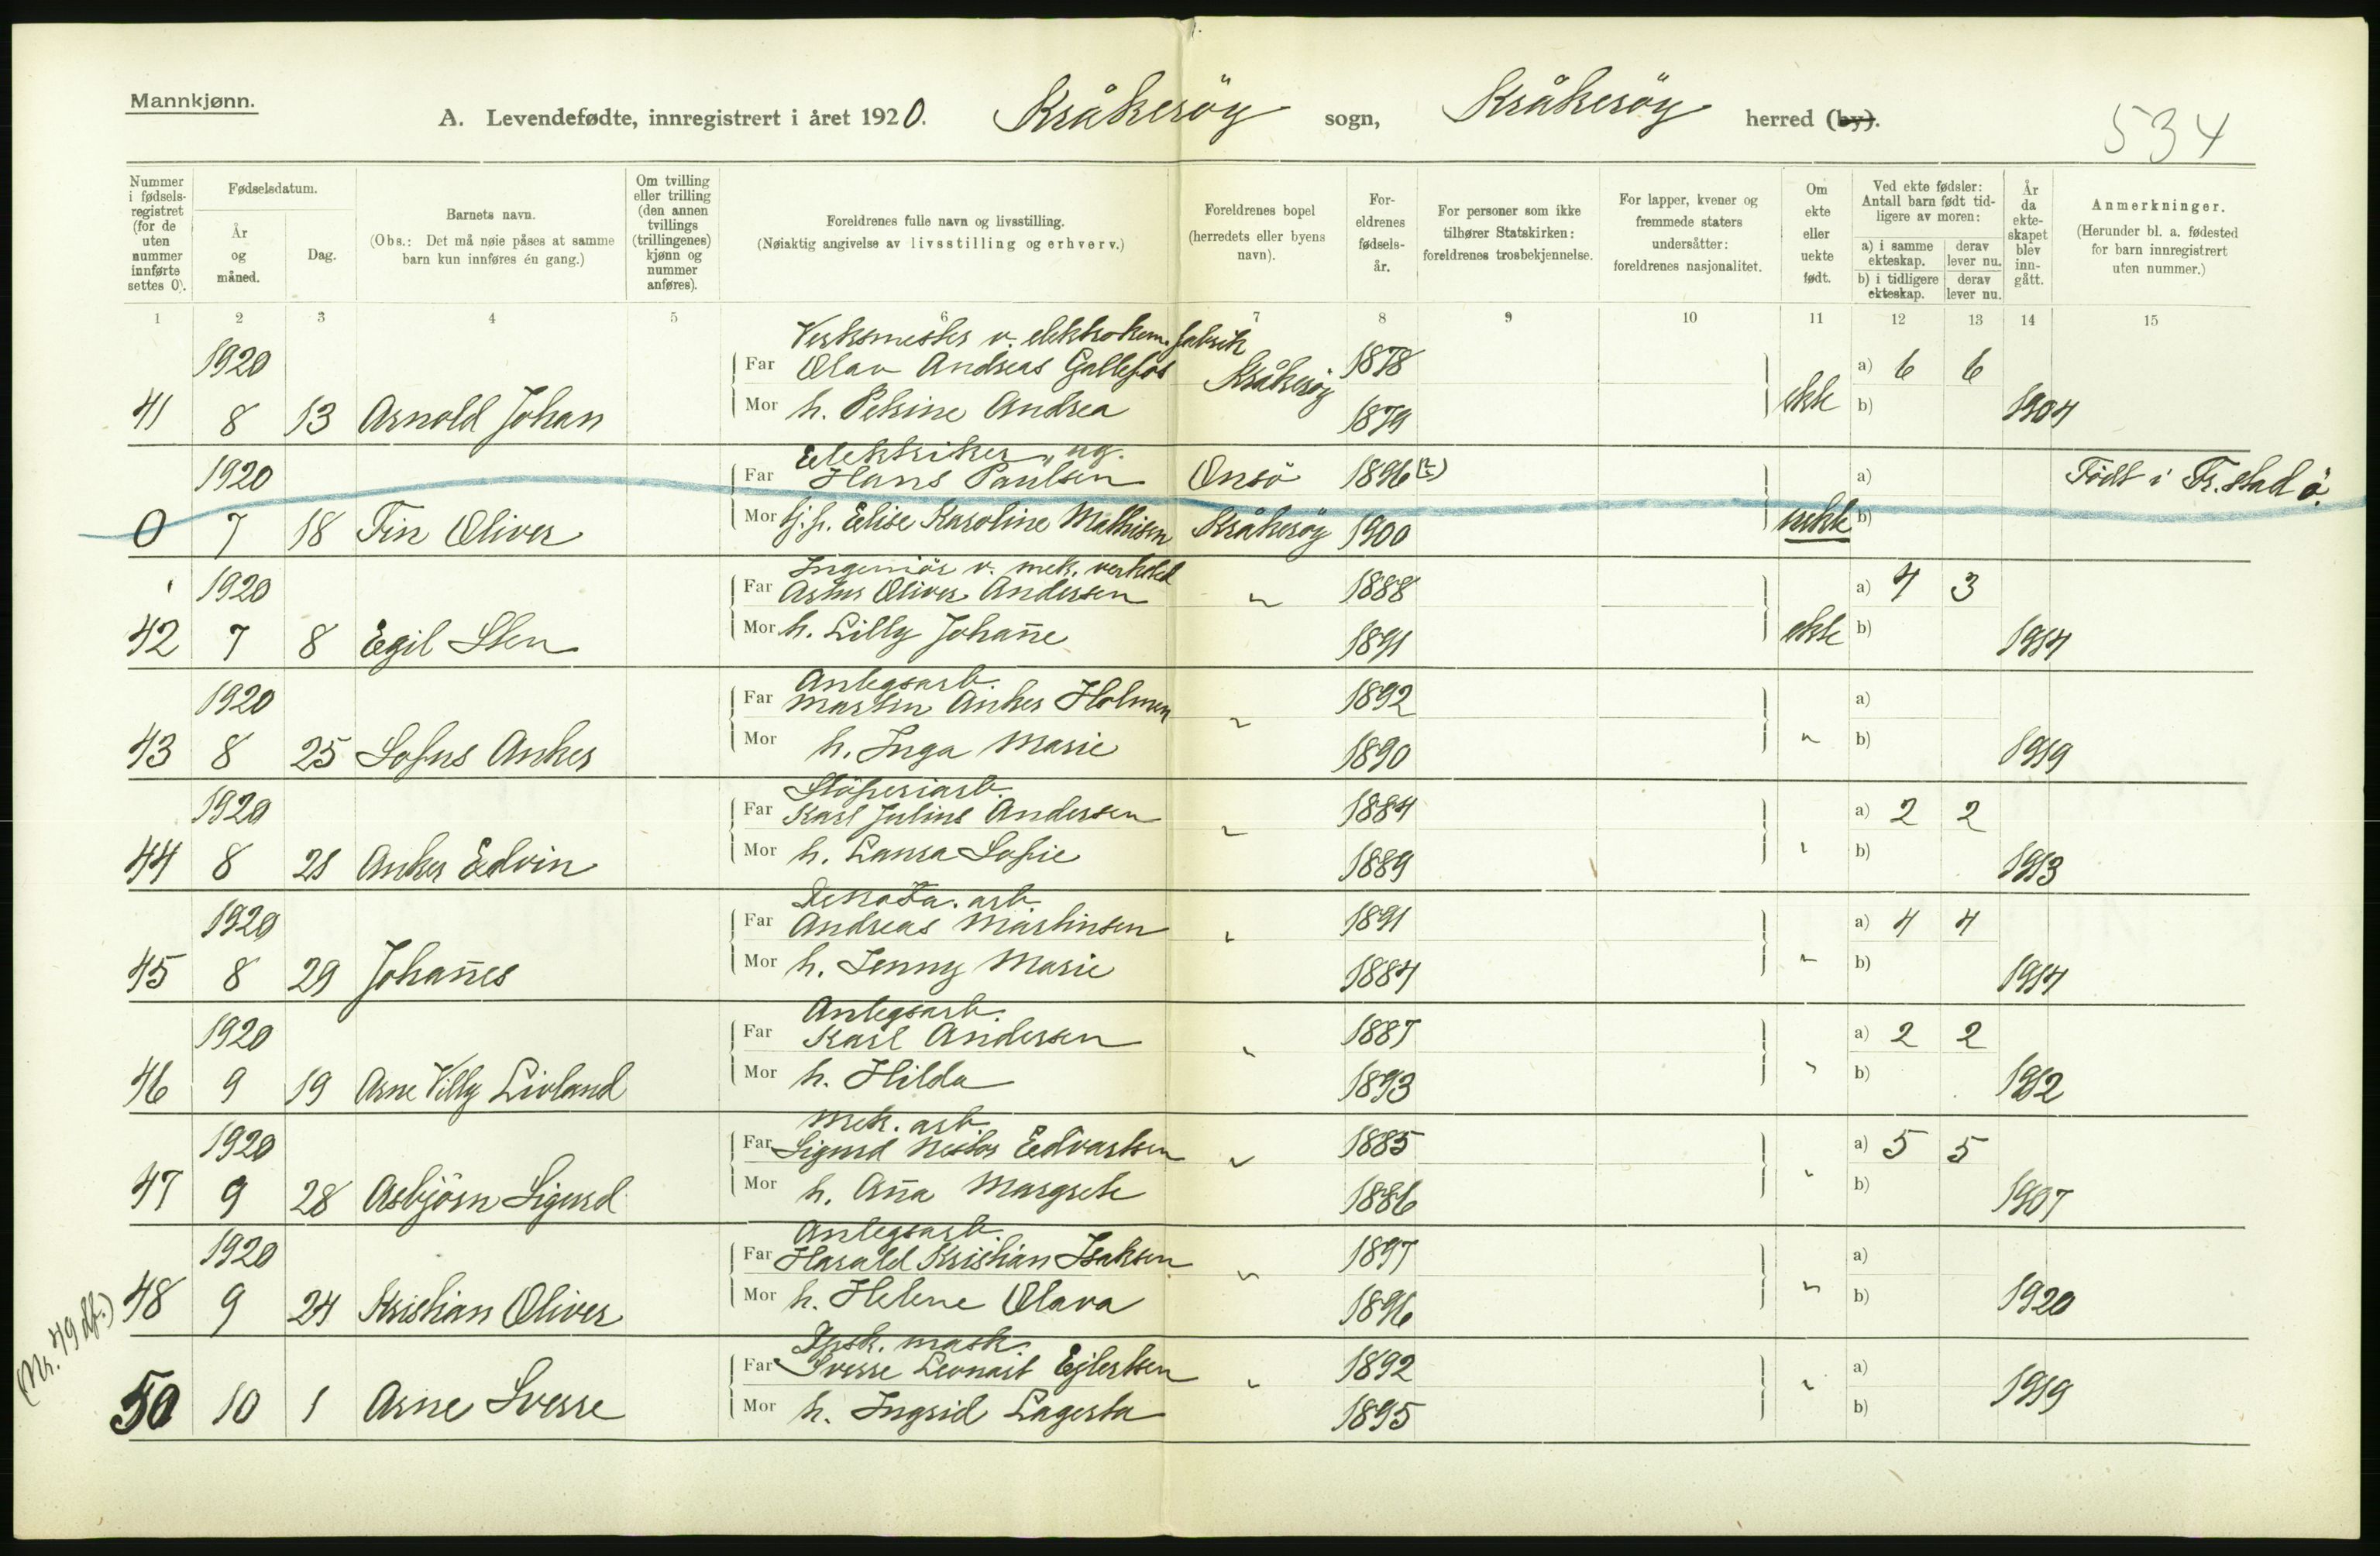 Mannkjønn.
A. Levendefødte, innregistrert i året 1920. Kråkeröy sogn, Kråkeröy herred (by).
534
Nummer i fødselsregistret (for de uten nummer innførte settes 0).
Fødselsdatum.
År og måned.
Dag.
Barnets navn.
(Obs.: Det må nøie påses at samme barn kun innføres én gang.)
Om tvilling eller trilling (den annen tvillings (trillingenes) kjønn og nummer anføres).
Foreldrenes fulle navn og livsstilling.
(Nøiaktig angivelse av livsstilling og erhverv.)
Foreldrenes bopel (herredets eller byens navn).
Foreldrenes fødselsår.
For personer som ikke tilhører Statskirken: foreldrenes trosbekjennelse.
For lapper, kvener og fremmede staters undersåtter: foreldrenes nasjonalitet.
Om ekte eller uekte født.
Ved ekte fødsler: Antall barn født tidligere av moren:
a) i samme ekteskap. derav lever nu.
b) i tidligere ekteskap. derav lever nu.
År da ekteskapet blev inngått.
Anmerkninger.
(Herunder bl. a. fødested for barn innregistrert uten nummer.)
1 2 3 4 5 6 7 8 9 10 11 12 13 14 15
Verksmester v. elektrokem. fabrik
1920 Far Olav Andreas Gallefos Kråkeröy 1878 a) 6 6
41 8 13 Arnold Johan Mor h. Petrine Andrea 1879 ekte b) 1904
Elektriker, ug.
1920 Far Hans Paulsen Onsö 1896 (?) a) Födt i Fr.stad ö.
0 7 18 Fin Oliver Mor tj.p. Elise Karoline Mathisen Kråkeröy 1900 uekte b)
Ingeniör v. mek. verksted
1920 Far Oliver Andersen " 1888 a) 4 3
42 7 8 Egil Sten Mor h. Lilly Johan̄e 1891 ekte b) 1914
Anlegsarb.
1920 Far Martin Anker Holmen " 1892 a)
43 8 25 Sofus Anker Mor h. Inga Marie 1890 " b) 1919
Stöperiarb.
1920 Far Karl Julius Andersen " 1884 a) 2 2
44 8 21 Anker Edvin Mor h. Laura Sofie 1889 " b) 1913
arb.
1920 Far Andreas Martinsen " 1891 a) 4 4
45 8 29 Johan̄es Mor h. Jenny Marie 1884 " b) 1914
Anlegsarb.
1920 Far Karl Andersen " 1887 a) 2 2
46 9 19 Arne Villy Livland Mor h. Hilda 1893 " b) 1912
Mek. arb.
1920 Far Sigurd Nestor Edvartsen " 1885 a) 5 5
47 9 28 Asbjörn Sigurd Mor h. An̄a Margrete 1886 " b) 1907
Anlegsarb.
1920 Far Harald Kristian Isaksen " 1897 a)
48 9 24 Kristian Oliver Mor h. Helene Olava 1896 " b) 1920
(Nr. 49 df.)
mask.
Far Sverre Leonart Ejlertsen " 1892 a)
50 10 1 Arne Sverre Mor h. Ingrid Lagerta 1895 " b) 1919